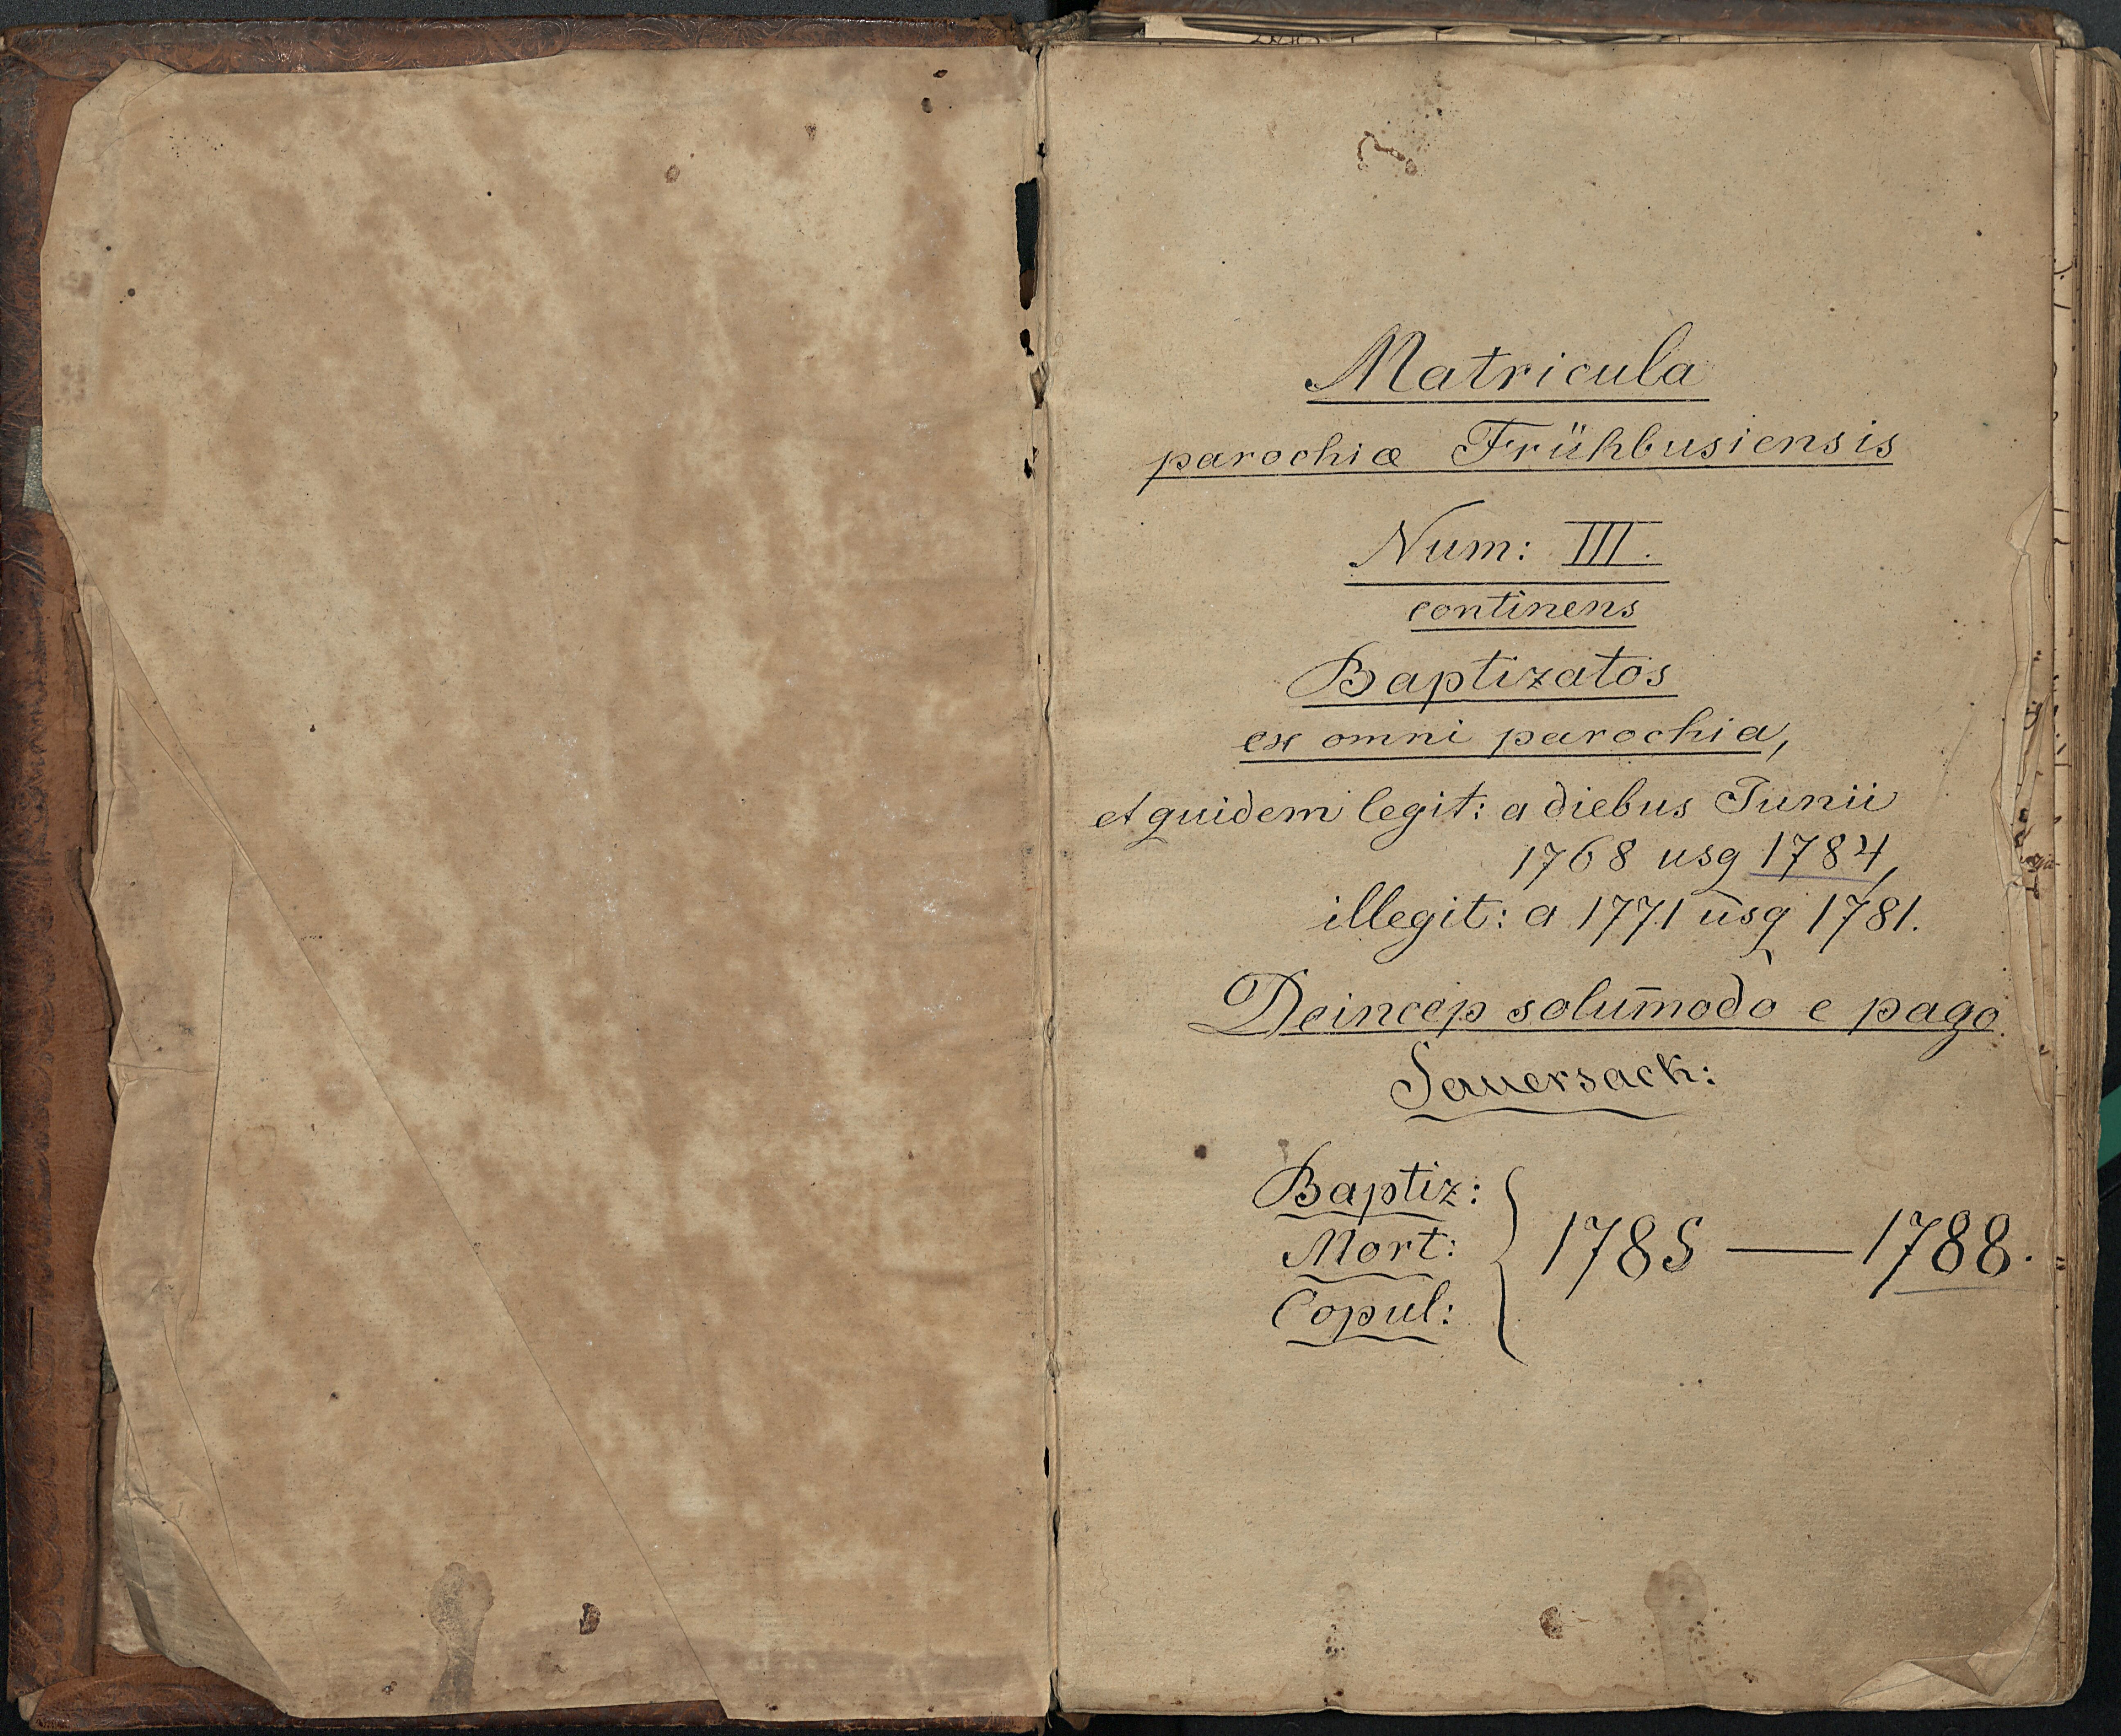 Matricula
parochiæ Frühbusiensis
Num: III.
continens
Baptizatos
ex omni parochia,
et quidem legit: a diebus Junii
1768 usq 1784,
illegit: a 1771 usq 1781.
Deincep solum̄odo e pago
Sauersack:
Baptiz:
Mort:
Copul:
1785 — 1788.